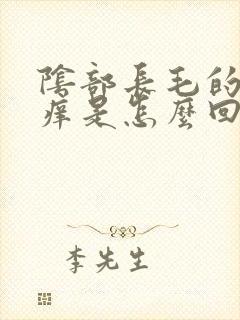 陰部長毛的
痒是怎麼回
李先生